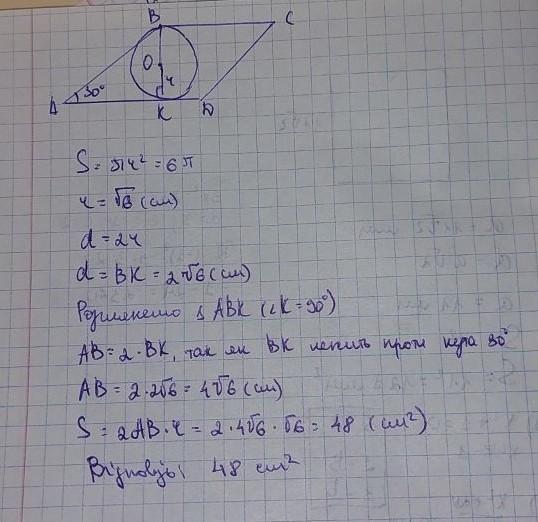 B C
O
r
A 30° K D
S = πr² = 6π
r = √6 (см)
d = 2r
d = BK = 2√6 (см)
Розглянемо Δ ABK (∠K = 90°)
AB = 2 · BK, так як BK лежить проти кута 30°
AB = 2 · 2√6 = 4√6 (см)
S = 2AB · r = 2 · 4√6 · √6 = 48 (см²)
Відповідь: 48 см²